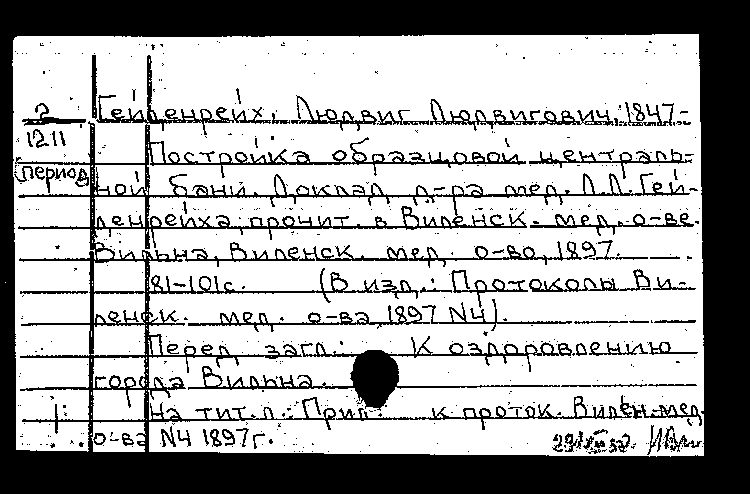 2 Гейденрейх, Людвиг Людвигович, 1847-
1211
(период) Постройка образцовой централь-
ной бани. Доклад д-ра мед. Л.Л. Гей-
денрейха, прочит. в Виленск. мед. о-ве.
Вильна, Виленск. мед. о-во, 1897.
81-101с. (В изд.: Протоколы Ви-
ленск. мед. о-ва, 1897 №4).
Перед загл.: К оздоровлению
города Вильна.
На тит. л.: Прил. к проток. Вилен. мед.
о-ва №4 1897г.